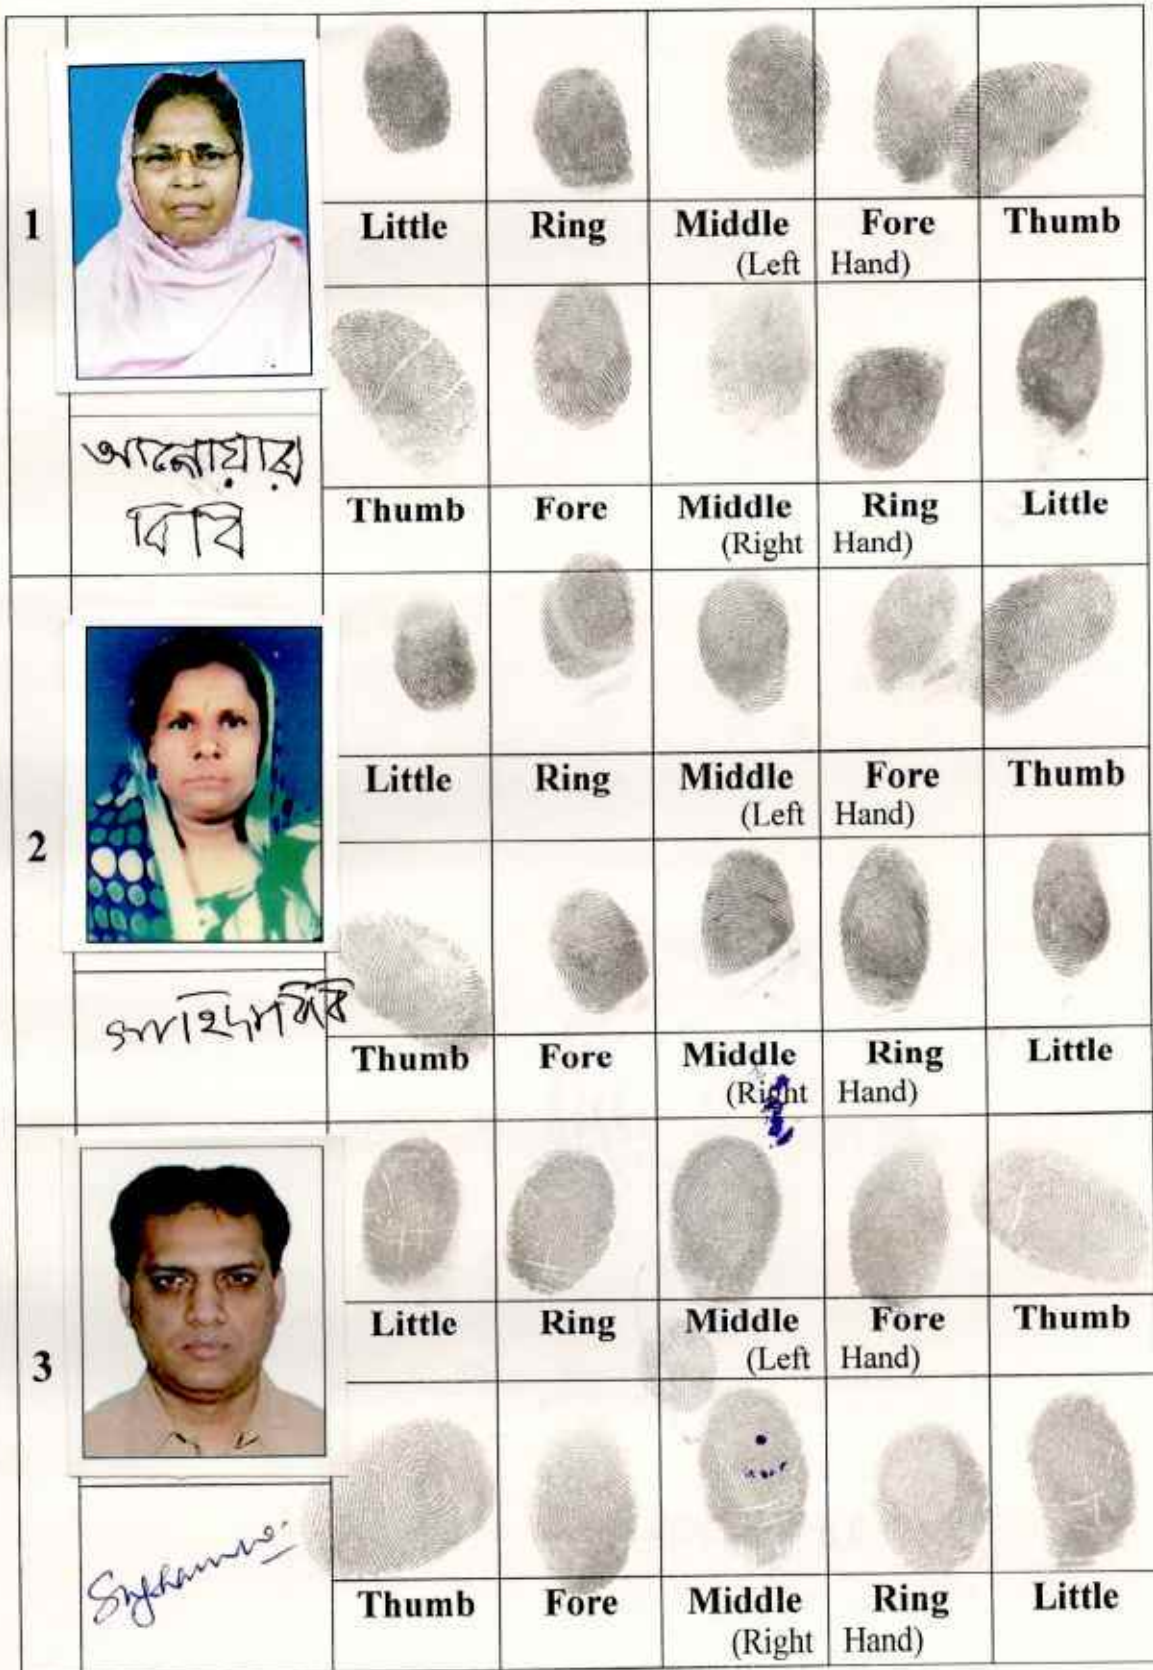 1
Little Ring Middle Fore Thumb
(Left Hand)
আনোয়ারা
বিবি
Thumb Fore Middle Ring Little
(Right Hand)
2
Little Ring Middle Fore Thumb
(Left Hand)
বিবি
Thumb Fore Middle Ring Little
(Right Hand)
3
Little Ring Middle Fore Thumb
(Left Hand)
Thumb Fore Middle Ring Little
(Right Hand)